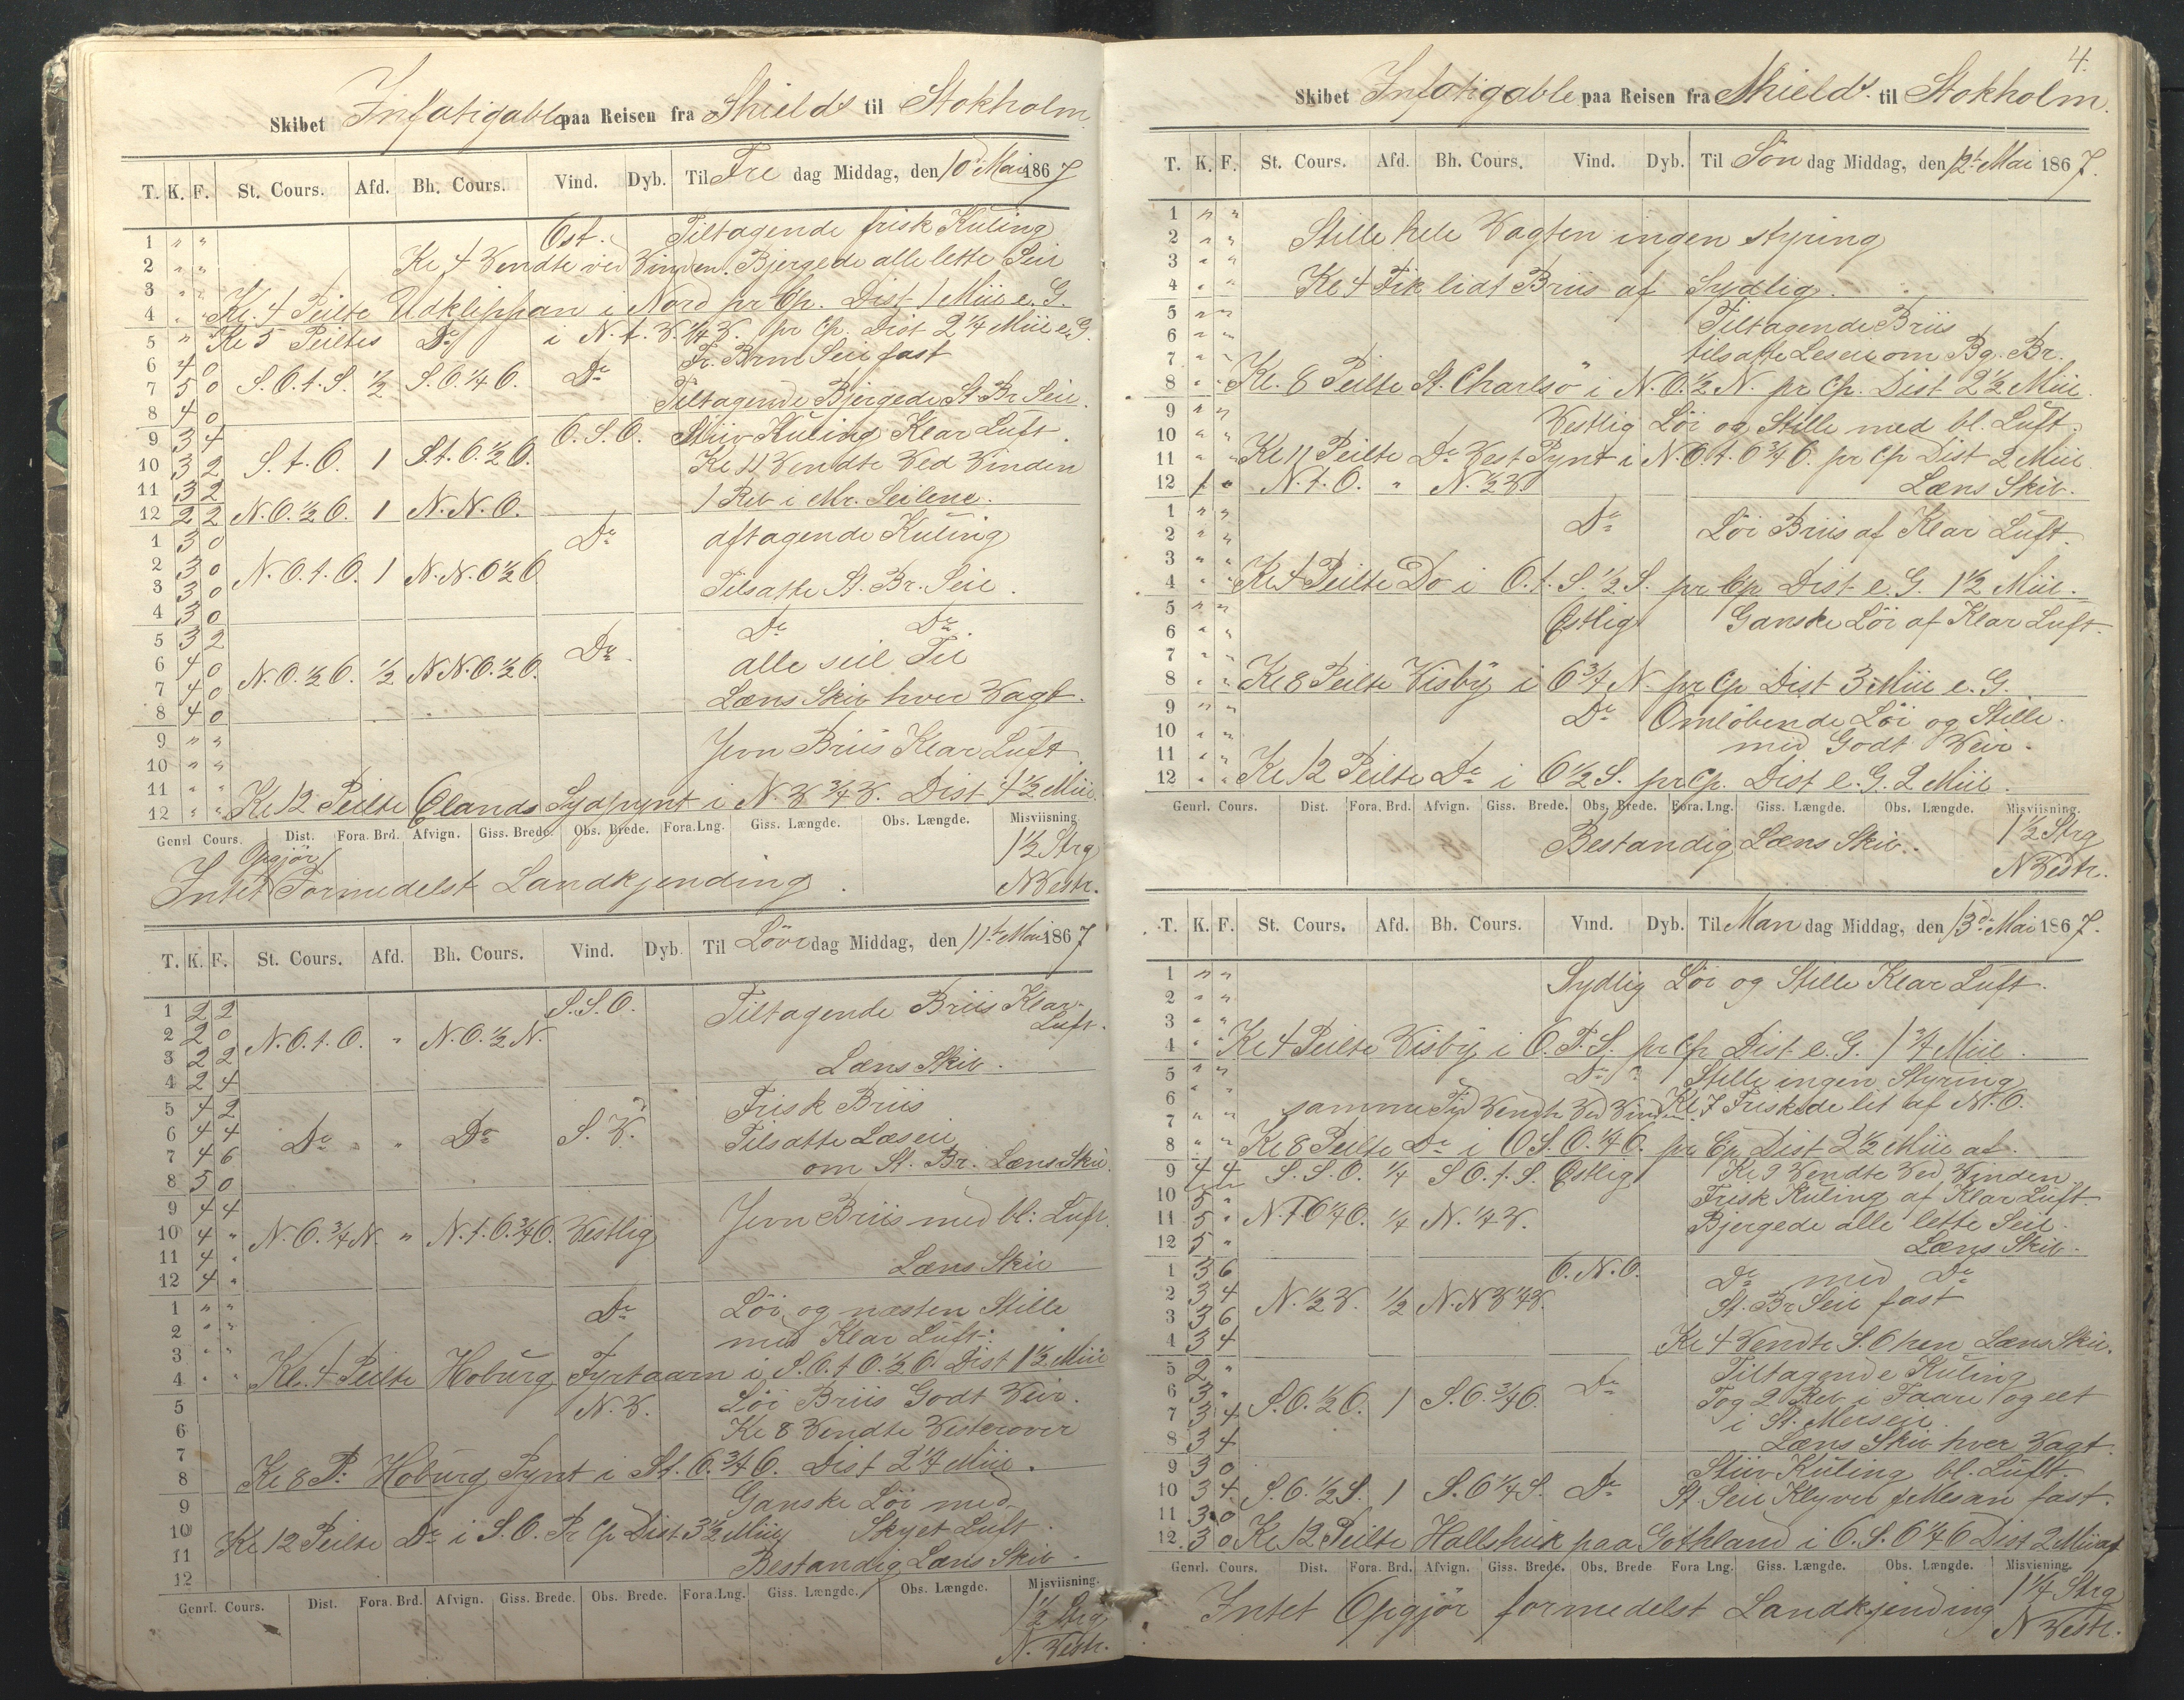 Skibet Infatigable paa Reisen fra Shields til Stokholm.
T. K. F. St. Cours. Afd. Bh. Cours. Vind. Dyb. Til Fre dag Middag, den 10d Mai 1867
1 " " Ost. Tiltagende frisk Kuling
2 " " Kl 4 Vendte ved Vinden. Bjergede alle lette Seil
3 " "
4 " " Kl. 4 Peilte Udklippan i Nord pr Cp. Dist 1 Miil e. G.
5 " Kl 5 Peiltes Do i N. t. V. 1/4 V. pr Cp. Dist 2 1/4 Miil e. G.
6 4 0 Fr. Brm Seil fast
7 5 0 S. O. t. S. 1/2 S. O. 1/4 O. Do
8 4 0 Tiltagende Bjergede St. Br Seil.
9 3 4 O. S. O. Stiiv Kuling Klar Luft.
10 3 2 S. t. O. 1 S.t. O. 1/2 O. Kl 11 Vendte Ved Vinden
11 3 2 1 Reb i Mr. Seilene.
12 2 2 N. O. 1/2 O. 1 N. N. O.
1 3 0 Do aftagende Kuling
2 3 0 N. O. t. O. 1 N. N. O 1/2 O
3 3 0 Tilsatte St. Br. Seil.
4 3 0
5 3 2 Do Do Do
6 4 0 N. O. 1/2 O. 1/2 N N. O. 1/2 O. alle seil Til
7 4 0 Læns Skib hver Vagt.
8 4 0
9 " " Jevn Briis Klar Luft
10 " "
11 " "
12 " " Kl 12 Peilte Ølands Sydpynt i N. V 3/4 V. Dist 4 1/2 Miil.
Genrl. Cours. Dist. Fora. Brd. Afvign. Giss. Brede. Obs. Brede. Fora.Lng. Giss. Længde. Obs. Længde. Misviisning.
Opgjør 1 1/2 Strg
Intet Formedelst Landkjending. N Vestr.
T. K. F. St. Cours. Afd. Bh. Cours. Vind. Dyb. Til Löver dag Middag, den 11te Mai 1867
1 2 2 S. S. O. Tiltagende Briis Klar
2 2 0 N. O. t. O. " N. O. 1/2 N. Luft.
3 2 2 Læns Skib.
4 2 4
5 4 2 Frisk Briis
6 4 4 Do " " Do S. V. Tilsatte Læseil
7 4 6 om St. Br. Læns Skib.
8 5 0
9 4 4 Jevn Briis med bl: Luft.
10 4 " N. O. 3/4 N. " N. t. O. 3/4 O. Vestlig
11 4 " Læns Skib
12 4 "
1 " " Do Löi og næsten Stille
2 " " med Klar Luft.
3 " "
4 " " Kl. 4 Peilte Hoburg Fyrtaarn i S. O. t O. 1/2 O. Dist 1 1/2 Miil
5 N. V. Löi Briis Godt Veir.
6 Kl 8 Vendte Vesterover
7
8 Kl 8 P: Hoburg Pynt i St. O. 3/4 O. Dist 2 1/4 Miil.
9 Ganske Löi med
10 Kl 12 Peilte Do i S. O. Pr Cp Dist 3 1/2 Miil Skyet Luft.
11 Bestandig Læns Skib.
12
Genrl. Cours. Dist. Fora. Brd. Afvign. Giss. Brede. Obs. Brede. Fora.Lng. Giss. Længde. Obs. Længde. Misviisning.
1 1/2 Strg
N. Vestr.
4.
Skibet Infatigable paa Reisen fra Shields til Stokholm.
T. K. F. St. Cours. Afd. Bh. Cours. Vind. Dyb. Til Søn dag Middag, den 12te Mai 1867.
1 " "
2 " " Stille hele Vagten ingen styring
3 " "
4 " " Kl 4 Fik lidt Briis af Sydlig.
5 " " Tiltagende Briis
6 " "
7 " " tilsatte Leseil om Bg. Br.
8 " " Kl. 8 Peilte St. Charlsö i N. O. 1/2 N. pr Cp. Dist 2 1/2 Miil.
9 " " Vestlig Löi og Stille med bl. Luft.
10 " "
11 " " Kl 11 Peilte Do Vest Pynt i N. O. t. O 3/4 O. pr Cp Dist 2 Miil
12 1 " N. t. O. " N. 1/2 V. Læns Skib.
1 " " Do Löi Briis af Klar Luft.
2 " "
3 " "
4 " " Kl 4 Peilte Do i O. t. S. 1/2 S. pr Cp Dist e. G. 1 1/2 Miil.
5 " " Østlig Ganske Löi af Klar Luft.
6 " "
7 " "
8 " " Kl 8 Peilte Visby i O 3/4 N. pr Cp Dist 3 Miil e. G.
9 " " Do Omlöbende Löi og Stille.
10 " " med Godt Veir.
11 " "
12 " " Kl 12 Peilte Do i O 1/2 S. pr Cp. Dist e. G. 2 Miil.
Genrl. Cours. Dist. Fora. Brd. Afvign. Giss. Brede. Obs. Brede. Fora. Lng. Giss. Længde. Obs. Længde. Misviisning.
Bestandig Læns Skib. 1 1/2 Strg
N Vestr.
T. K. F. St. Cours. Afd. Bh. Cours. Vind. Dyb. Til Man dag Middag, den 13de Mai 1867.
1 " " Sydlig Löi og Stille Klar Luft.
2 " "
3 " "
4 " " Kl 4 Peilte Visby i O. T. S. pr Cp Dist e. G. 1 3/4 Miil.
5 " " Do Stille ingen Styring
6 " " Kl 7 Friskede let af N. O.
7 " " samme Tid Vendte Ved Vinden
8 " " Kl 8 Peilte Do i O S. O. 1/4 O. pr Cp Dist 2 1/2 Miil af.
9 4 4 S. S. O. 1/4 S O. t. S. Østlig Kl 9 Vendte Ved Vinden
10 5 " Frisk Kuling af Klar Luft.
11 5 " N. T O 1/4 O. 1/4 N. 1/4 V. Bjergede alle lette Seil.
12 5 " Læns Skib.
1 3 6 O. N. O. Do med Do
2 3 4 N. 1/2 V. 1/2 N. N V 1/4 V. St. Br Seil fast
3 3 6
4 3 4 Kl 4 Vendte S. O hen Læns Skib.
5 2 " Tiltagende Kuling
6 3 " S. O. 1/2 O. 1 S. O. 3/4 O. Do Tog 2 Reb i Faare og et
7 3 4 i St. Merseil.
8 3 4 Læns Skib hver Vagt.
9 3 0 Stiiv Kuling bl. Luft.
10 3 4 S. O. 1/2 S. 1 S. O 1/4 S. Do St. Seil Klyver & Mesan fast.
11 3 0
12 3 0 Kl 12 Peilte Hallshuk paa Gothland i O. S. O 1/4 O Dist 2 Miil af
Genrl. Cours. Dist. Fora. Brd. Afvign. Giss. Brede. Obs. Brede Fora Lng. Giss. Længde. Obs. Længde. Misvisning.
Intet Opgjör formedelst Landkjending 1 1/4 Strg
N Vestr.